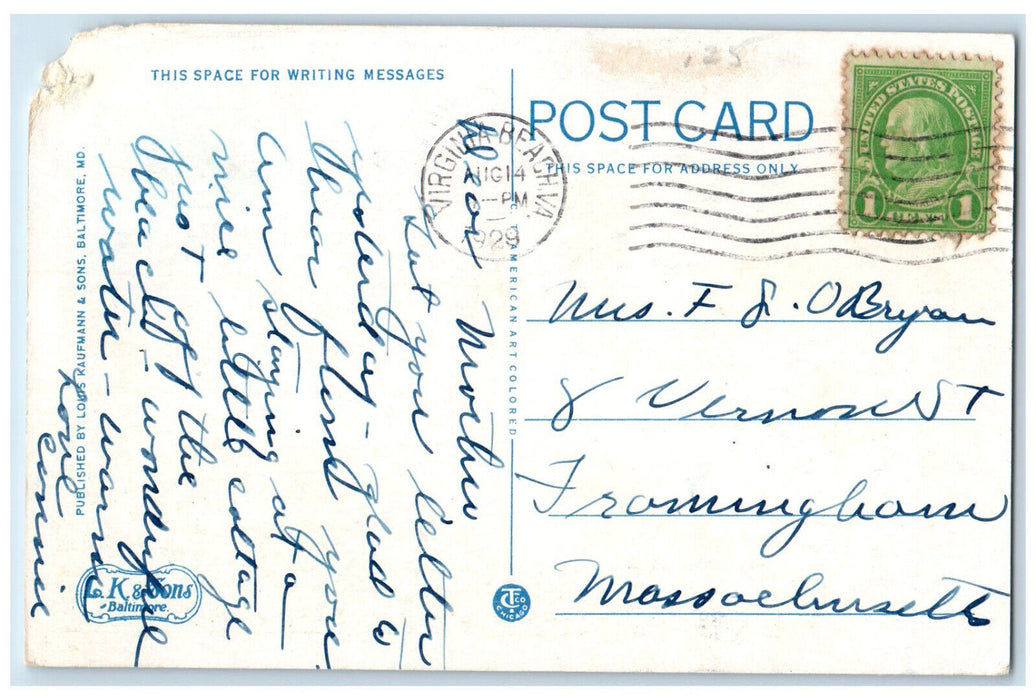 .25
THIS SPACE FOR WRITING MESSAGES
POST CARD
THIS SPACE FOR ADDRESS ONLY
UNITED STATES POSTAGE
1 CENT 1
VIRGINIA BEACH, VA.
AUG 14
PM
1929
Dear Mother
Got your letter
yesterday - glad to
hear from you.
am staying at a
nice little cottage
just off the
beach - wonderful
water - warm
Love
Connie
Mrs. F J. OBryan
8 Vernon St
Framingham
Massachusetts
PUBLISHED BY LOUIS KAUFMANN & SONS, BALTIMORE, MD.
L. K & Sons
Baltimore.
AMERICAN ART COLORED
CT CO
CHICAGO